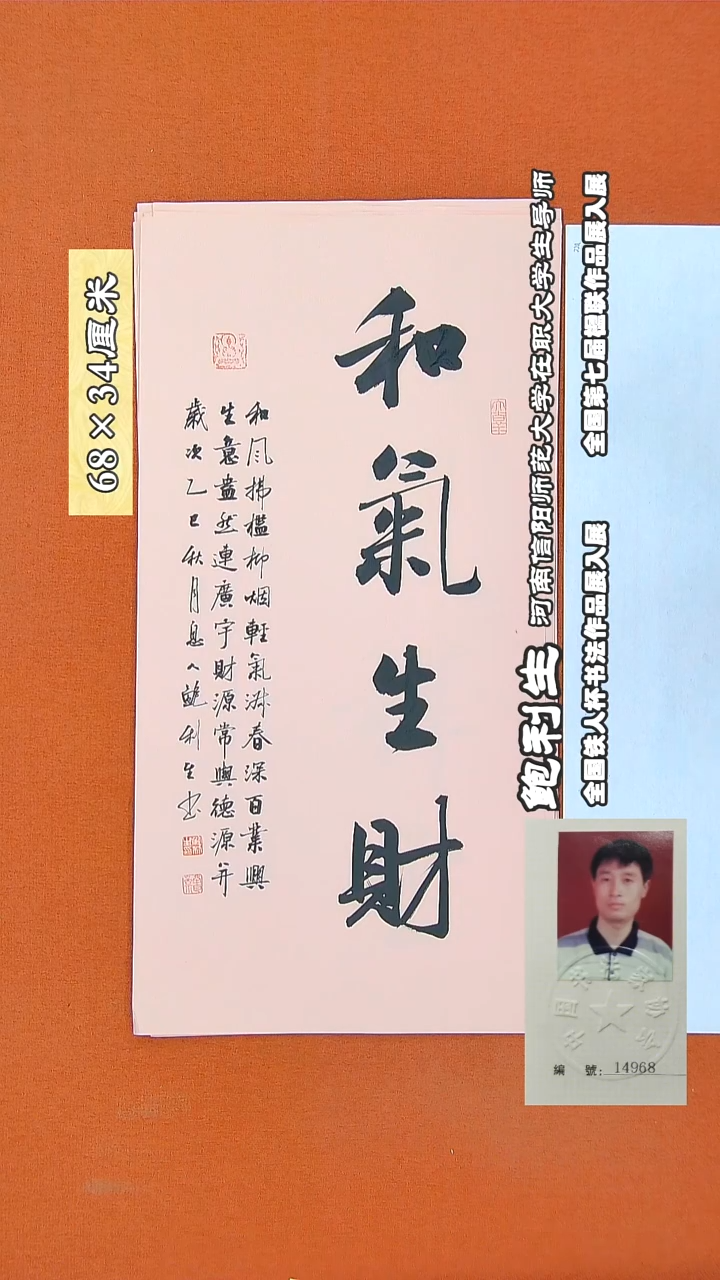 和氣生財
和风拂檻柳烟輕氣淑春深百業興
生意盎然連廣宇財源常與德源并
歲次乙巳秋月息人鮑利生书
68×34厘米
鲍利生
河南信阳师范大学在职大学生导师
全国铁人杯书法作品展入展
全国第七届楹联作品展入展
編 號:14968